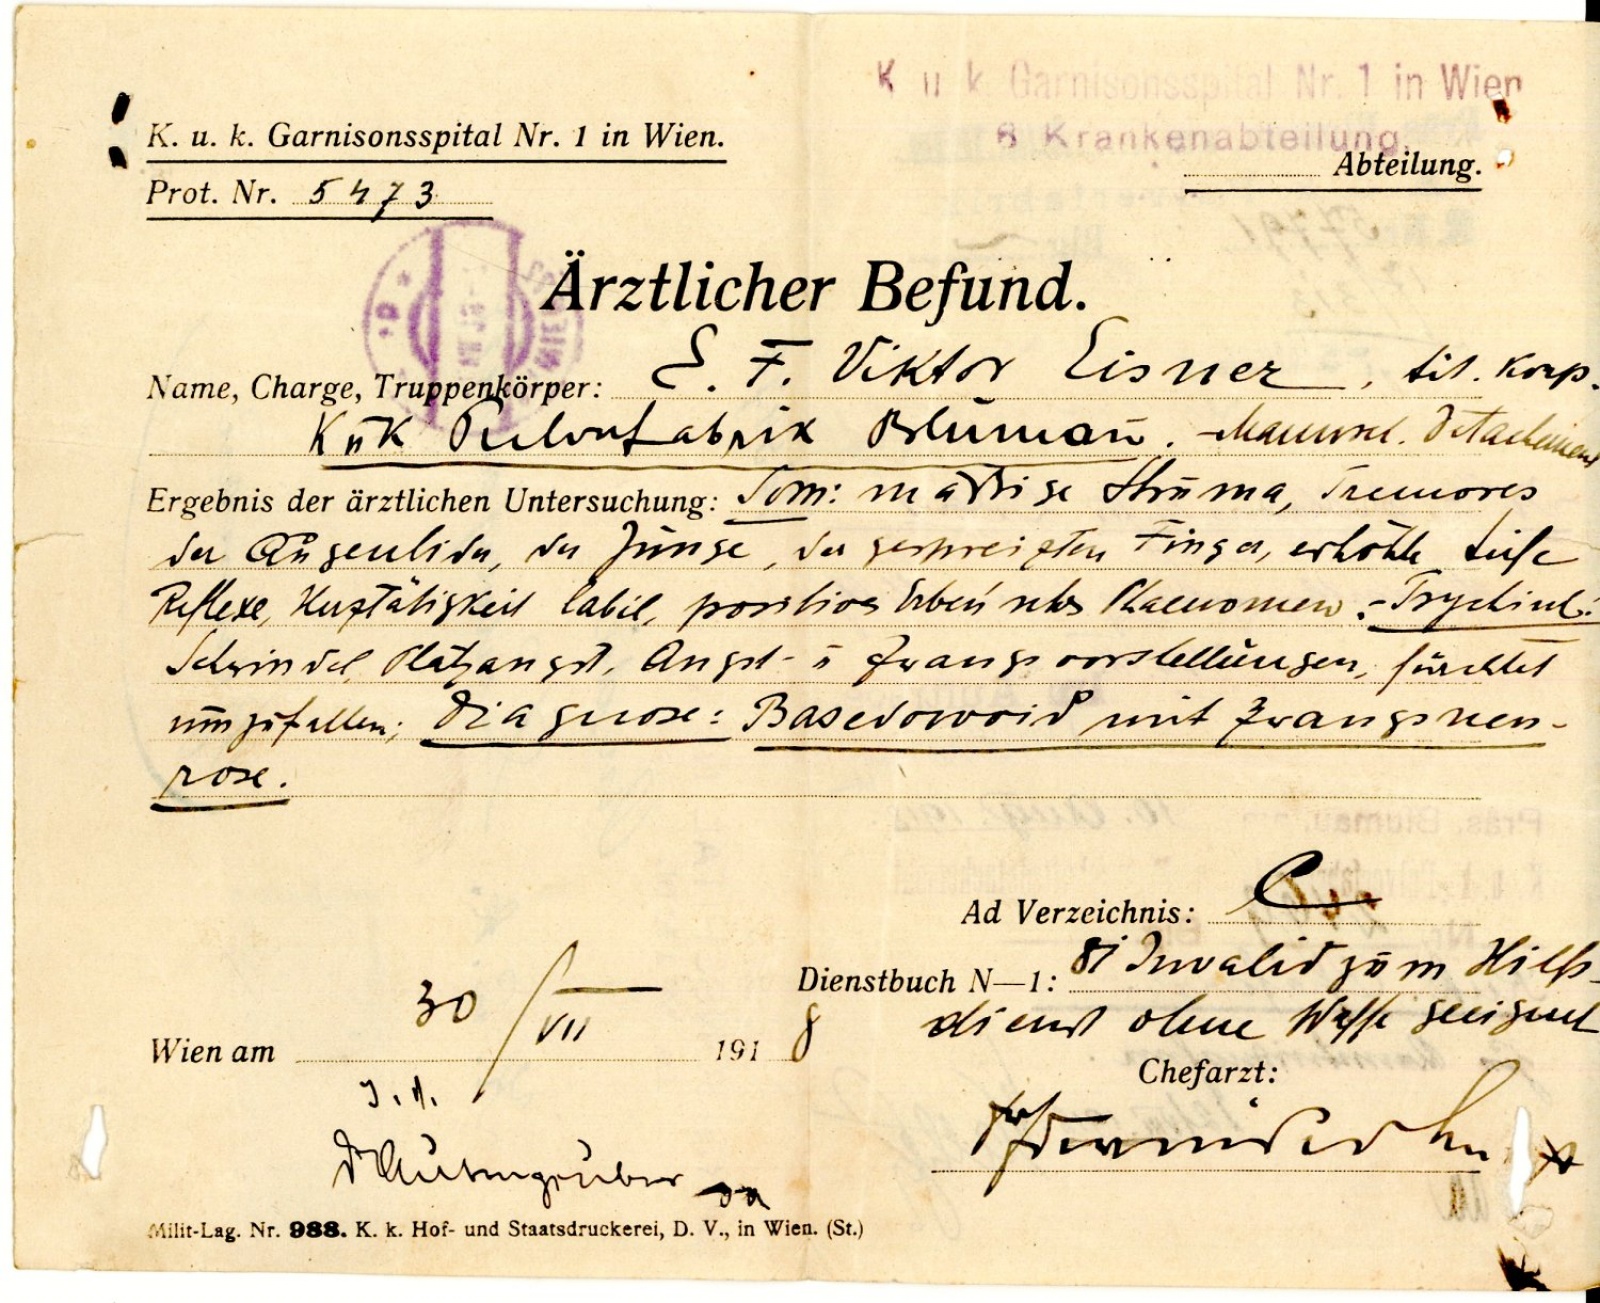 K u k Garnisonsspital Nr. 1 in Wien
8 Krankenabteilung.
K. u. k. Garnisonsspital Nr. 1 in Wien.
Abteilung.
Prot. Nr. 5473
Ärztlicher Befund.
Name, Charge, Truppenkörper: E. F. Viktor Eisner, tit. Korp.
K u K Pulverfabrik Blumau. Detachement
Ergebnis der ärztlichen Untersuchung: Som: mässige Struma, Tremores
der Augenlider, der Zunge, der gespreizten Finger, erhöhte tiefe
Reflexe, Herztätigkeit labil, positives Erben'sches Phaenomen. - Psychisch:
Schwindel, Platzangst, Angst- u Zwangsvorstellungen, fürchtet
umzufallen; Diagnose: Basedowoid mit Zwangsneu-
rose.
Ad Verzeichnis: C
Dienstbuch N—1: Invalid zum Hilfs-
dienst ohne Waffe geeignet
Wien am 30/VII 1918
Chefarzt:
Milit-Lag. Nr. 988. K. k. Hof- und Staatsdruckerei, D. V., in Wien. (St.)